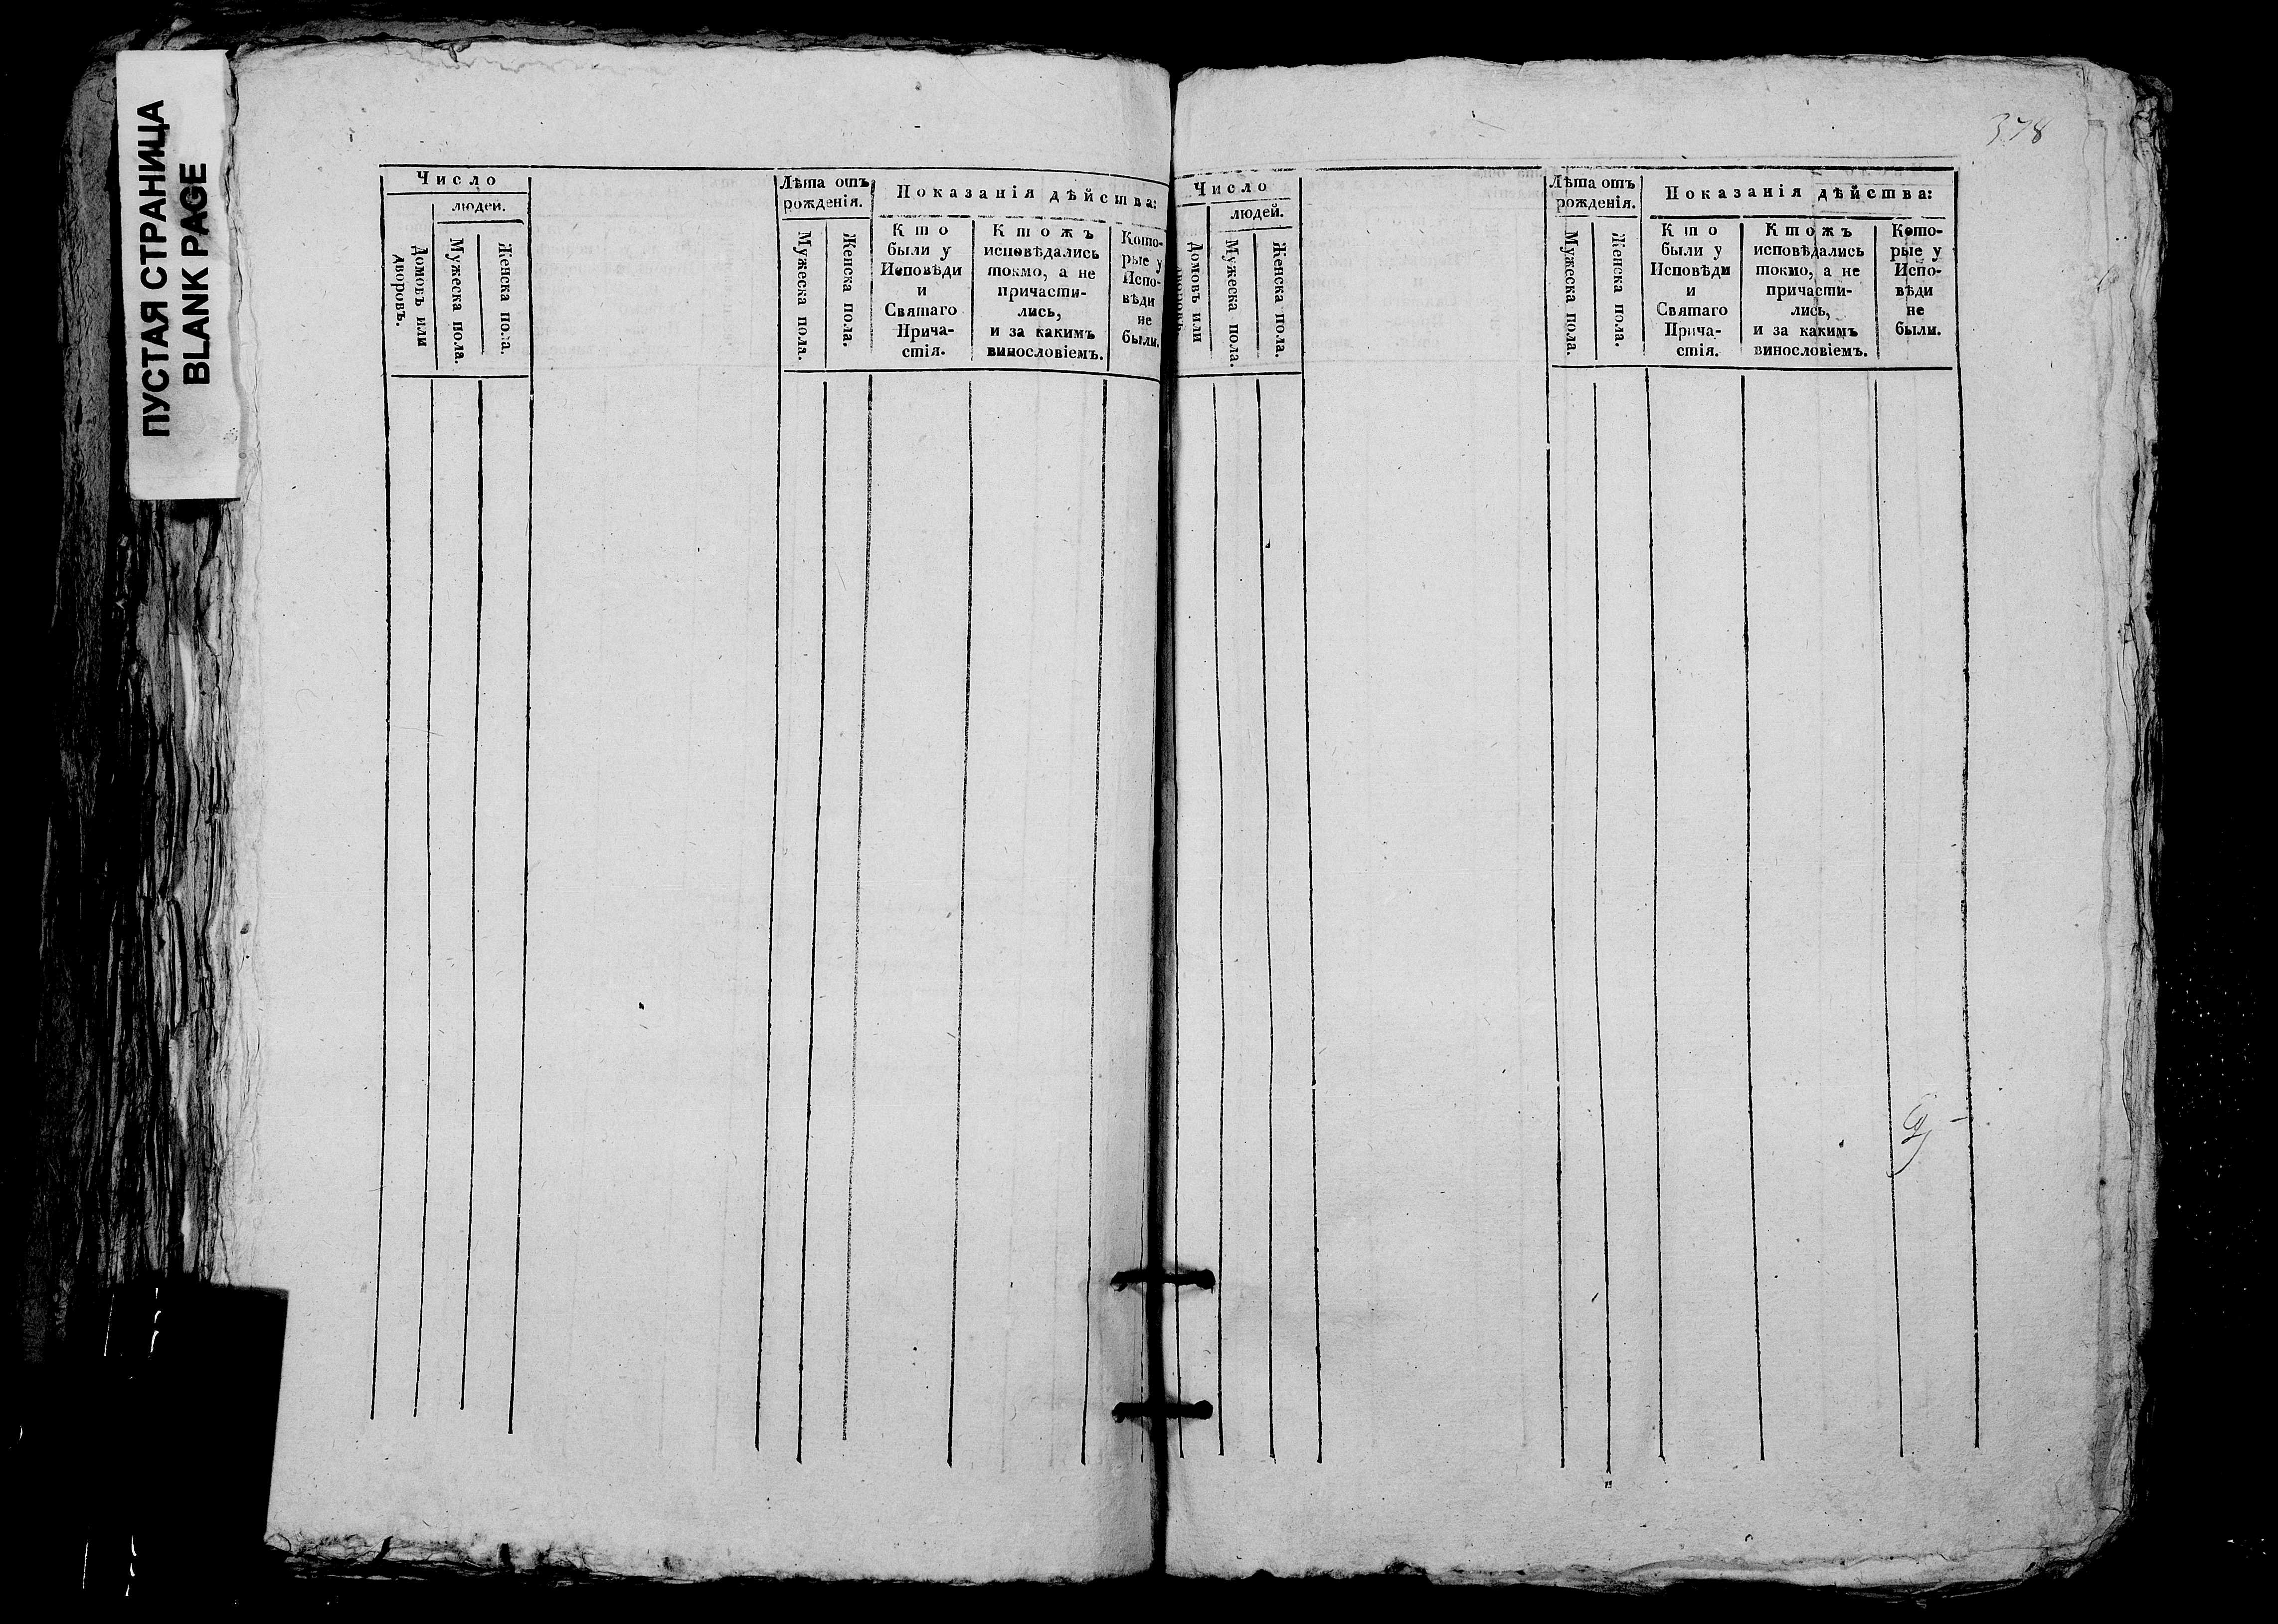 ПУСТАЯ СТРАНИЦА
BLANK PAGE
Число
людей.
Домовъ или
дворовъ.
Мужеска пола.
Женска пола.
Лѣта отъ
рожденія.
Мужеска пола.
Женска пола.
Показанія дѣйства:
Кто
были у
Исповѣди
и
Святаго
Прича-
стія.
Ктожъ
исповѣдались
токмо, а не
причасти-
лись,
и за какимъ
винословіемъ.
Кото-
рые у
Испо-
вѣди
не
были.
378
Число
людей.
Домовъ или
дворовъ.
Мужеска пола.
Женска пола.
Лѣта отъ
рожденія.
Мужеска пола.
Женска пола.
Показанія дѣйства:
Кто
были у
Исповѣди
и
Святаго
Прича-
стія.
Ктожъ
исповѣдались
токмо, а не
причасти-
лись,
и за какимъ
винословіемъ.
Кото-
рые у
Испо-
вѣди
не
были.